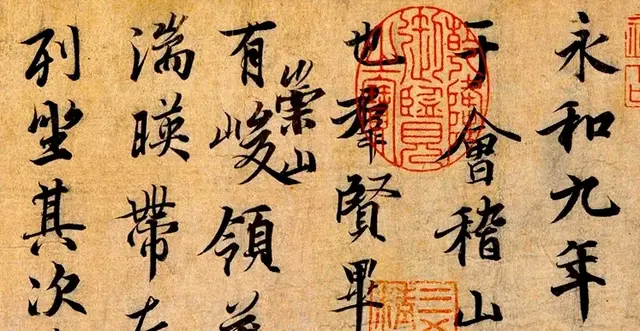 永和九年
于會稽山
也羣賢畢
崇山
有峻領
湍暎帶左
列坐其次
乾隆御覽之寶